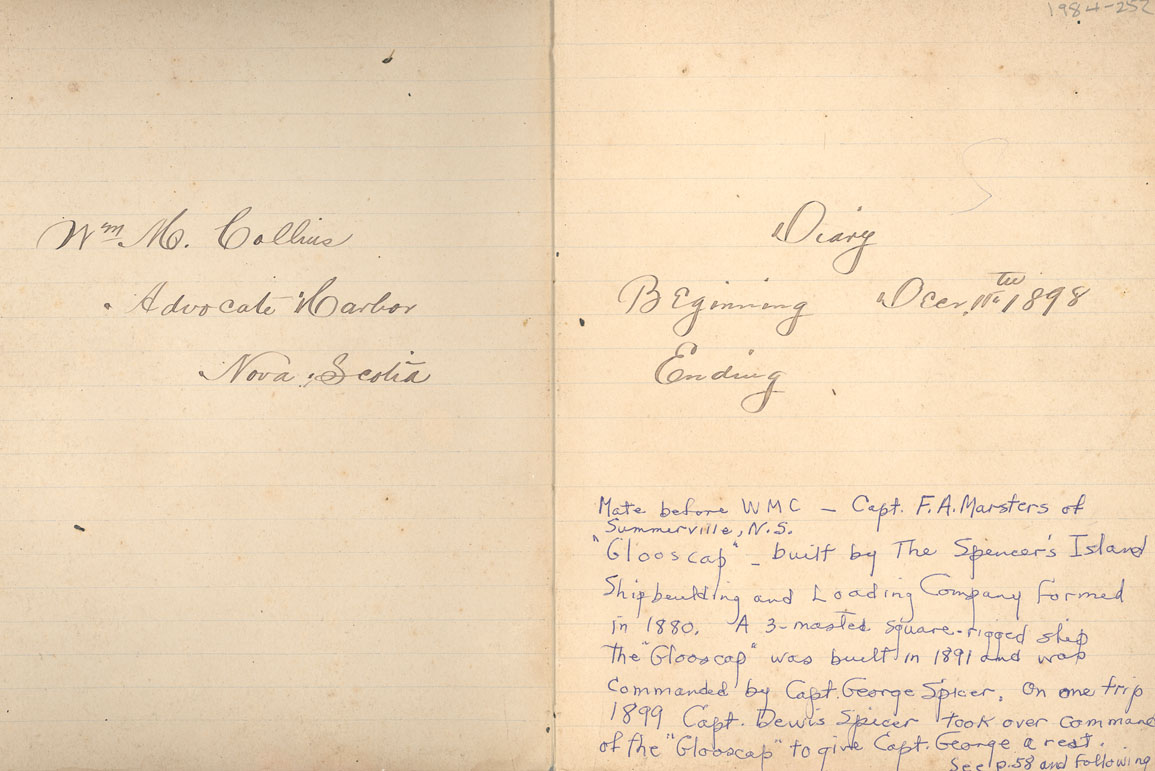 Wm M. Collins
Advocate Harbor
Nova Scotia
1984-252
Diary
Beginning Decr, 11th 1898
Ending
Mate before WMC – Capt. F.A. Marsters of
Summerville, N.S.
"Glooscap" – built by The Spencer's Island
Shipbeulding and Loading Company formed
in 1880. A 3-masted square-rigged ship
the "Glooscap" was built in 1891 and was
commanded by Capt. George Spicer. On one trip
1899 Capt. Dewis Spicer took over command
of the "Glooscap" to give Capt. George a rest.
See p.58 and following